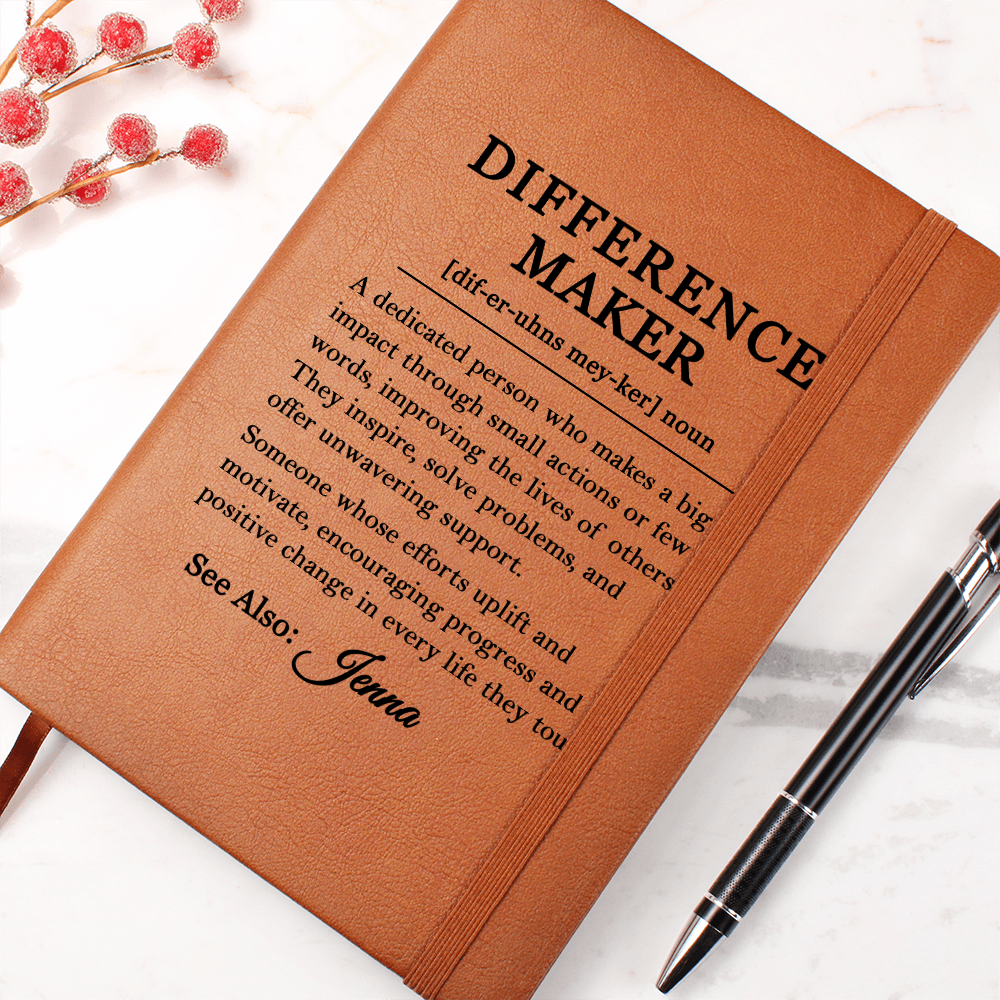 DIFFERENCE
MAKER
[dif-er-uhns mey-ker] noun
A dedicated person who makes a big
impact through small actions or few
words, improving the lives of others
They inspire, solve problems, and
offer unwavering support.
Someone whose efforts uplift and
motivate, encouraging progress and
positive change in every life they tou
See Also: Jenna